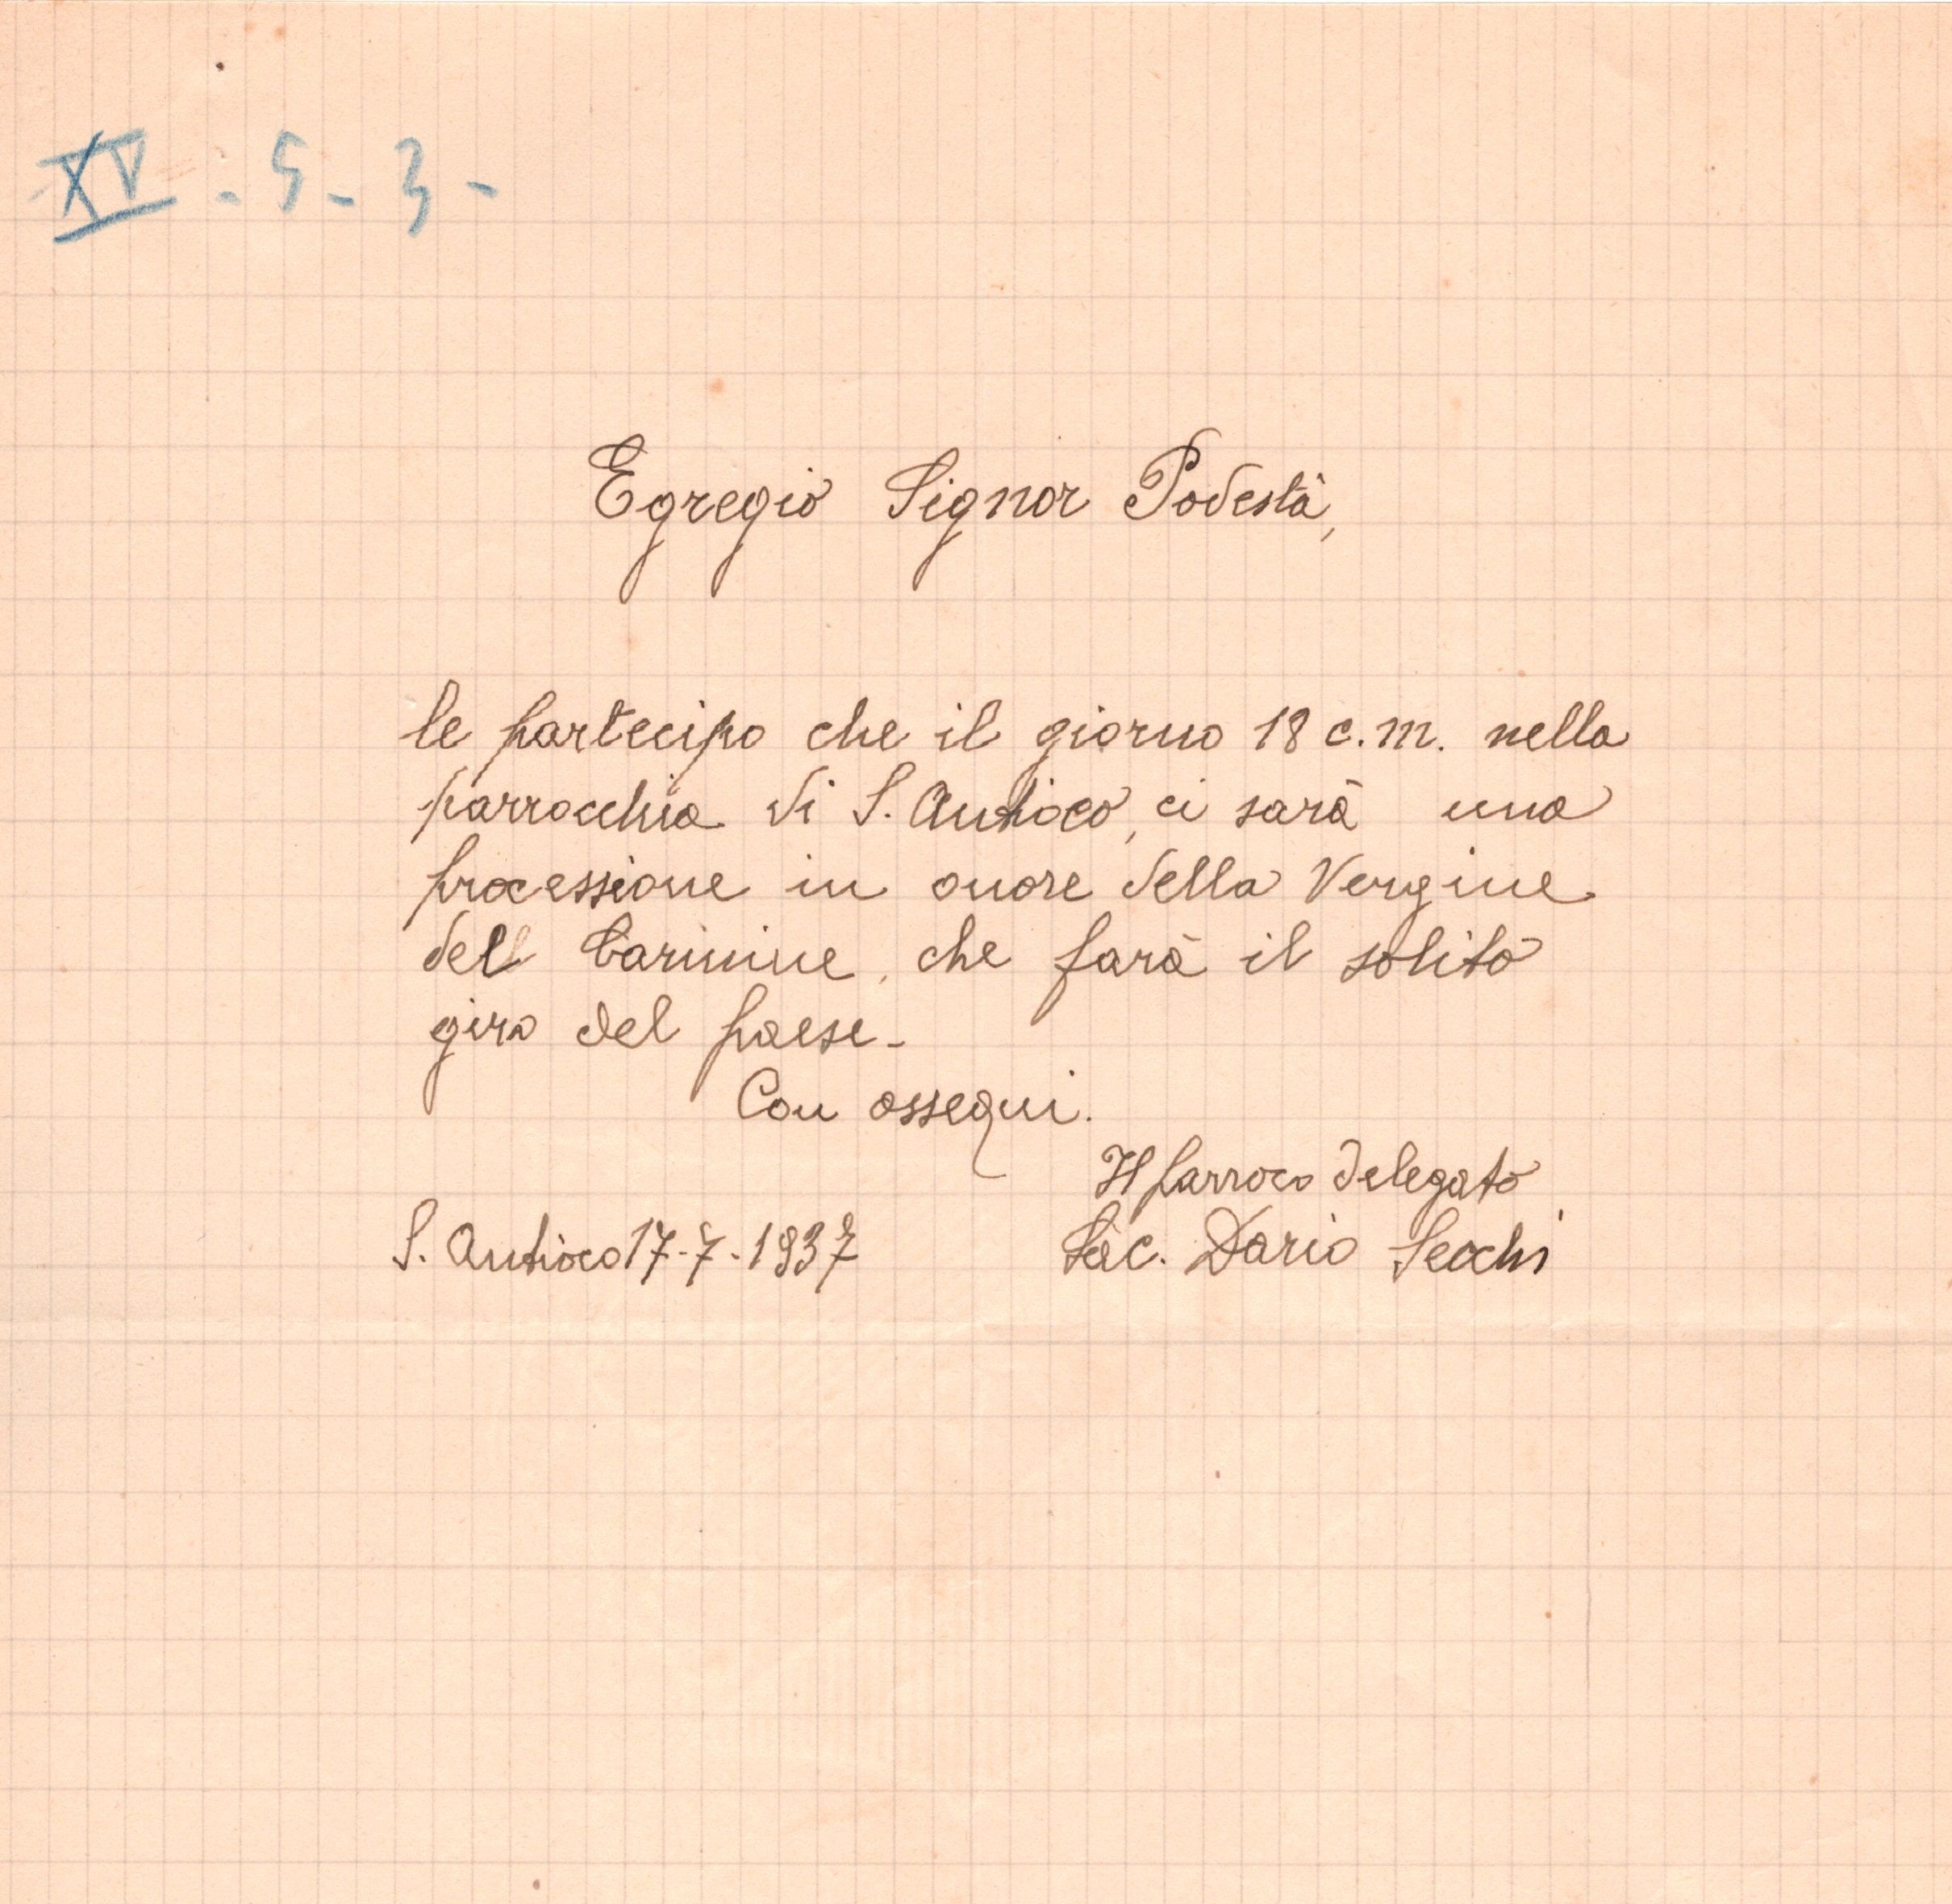 XV - 5 - 3 -
Egregio Signor Podestà,
le partecipo che il giorno 18 c.m. nella
parrocchia di S. Antioco, ci sarà una
processione in onore della Vergine
del Carmine, che farà il solito
giro del paese -
Con ossequi.
Il parroco delegato
S. Antioco 17-7-1937
Sac. Dario Secchi